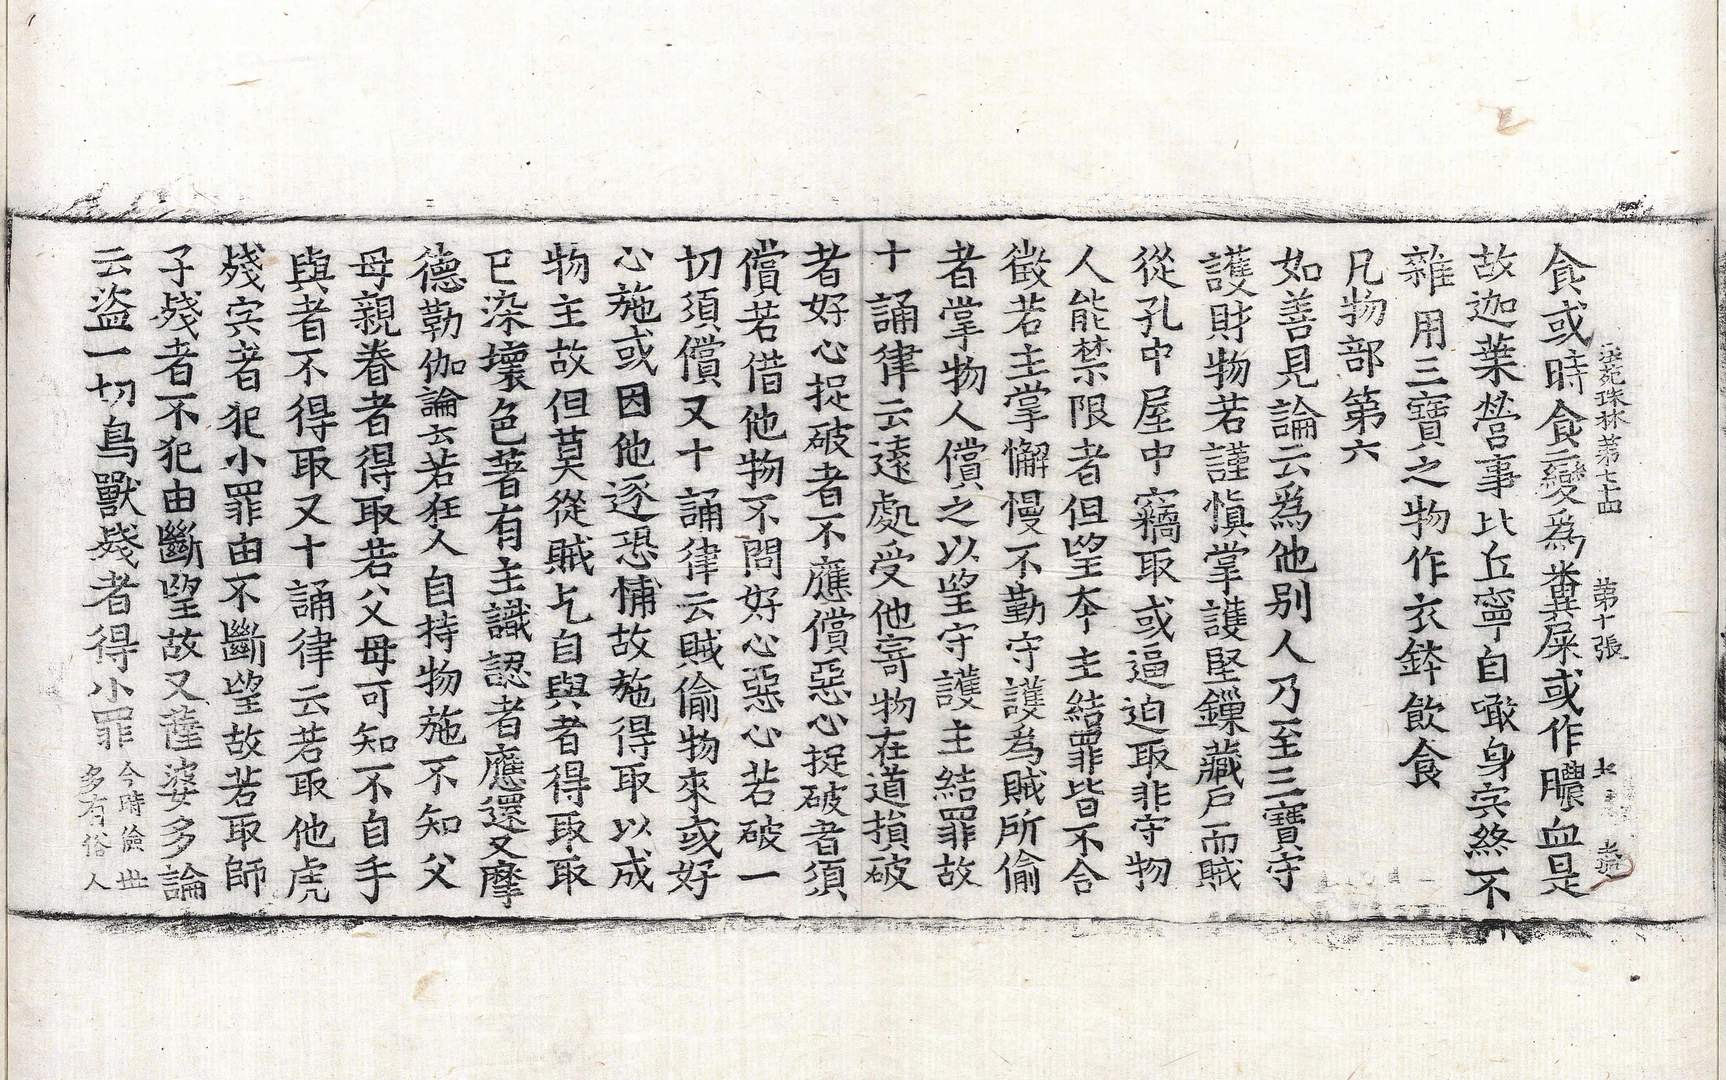 法苑珠林第七十四　第十張
食或時食變爲糞屎或作膿血是
故迦葉營事比丘寧自噉身宍終不
雜用三寶之物作衣鉢飲食
凡物部第六
如善見論云爲他別人乃至三寶守
護財物若謹慎掌護堅鏁藏戶而賊
從孔中屋中竊取或逼迫取非守物
人能禁限者但望本主結罪皆不合
徵若主掌懈慢不勤守護爲賊所偷
者掌物人償之以望守護主結罪故
十誦律云遠處受他寄物在道損破
者好心捉破者不應償惡心捉破者須
償若借他物不問好心惡心若破一
切須償又十誦律云賊偷物來或好
心施或因他逐恐怖故施得取以成
物主故但莫從賊乞自與者得取取
已染壞色著有主識認者應還又摩
德勒伽論云若狂人自持物施不知父
母親眷者得取若父母可知不自手
與者不得取又十誦律云若取他虎
殘宍者犯小罪由不斷望故若取師
子殘者不犯由斷望故又薩婆多論
云盜一切鳥獸殘者得小罪今時儉世
多有俗人